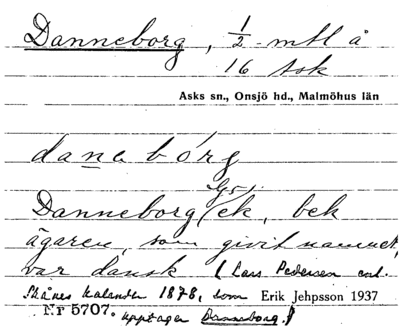 Danneborg, 1/2 mtl å
16 Ask
Asks sn., Onsjö hd., Malmöhus län
danabórg
Danneborg(ek, bek
ägaren, som givit namnet,
var dansk (Lars Pedersen enl.
Skånes kalender 1878, som Erik Jehpsson 1937
Nr 5707. upptager Danneborg.)